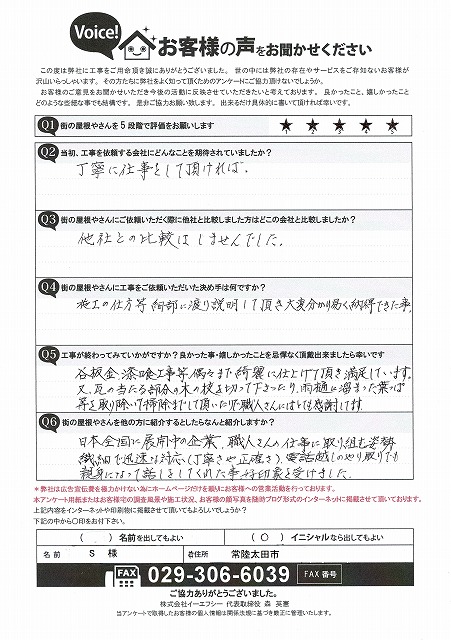 Voice!
お客様の声をお聞かせください
この度は弊社に工事をご用命頂き誠にありがとうございました。 世の中には弊社の存在やサービスをご存知ないお客様が
沢山いらっしゃいます。 その方たちに弊社をよく知って頂くためのアンケートにご協力頂けないでしょうか。
お客様のご意見をお聞かせいただき今後の活動に反映させていただきたいと考えております。 良かったこと、嬉しかったこと
どのような些細な事でも結構です。 是非ご協力お願い致します。 出来るだけ具体的に書いて頂ければ幸いです。
Q1 街の屋根やさんを5段階で評価をお願いします ★1 ★2 ★3 ★4 ★5
Q2 当初、工事を依頼する会社にどんなことを期待されていましたか?
丁寧に仕事をして頂ければ.
Q3 街の屋根やさんにご依頼いただく際に他社と比較しました方はどこの会社と比較しましたか?
他社との比較はしませんでした.
Q4 街の屋根やさんに工事をご依頼いただいた決め手は何ですか?
施工の仕方等 細部に渡り説明して頂き大変分かり易く納得できた事.
Q5 工事が終わってみていかがですか? 良かった事・嬉しかったことを忌憚なく頂戴出来ましたら幸いです
谷板金、漆喰工事等、隅々まで綺麗に仕上げて頂き満足しています.
又、瓦の当たる部分の木の枝を切って下さったり、雨樋に溜まった葉っぱ
等を取り除いて掃除までして頂いたり、職人さんにはとても感謝してます.
Q6 街の屋根やさんを他の方に紹介するとしたらなんと紹介しますか?
日本全国に展開中の企業、職人さんの仕事に取り組む姿勢
繊細で迅速な対応(丁寧さや正確さ)、電話越しのやり取りでも
親身になって話しをしてくれた事
好印象を受けました.
*弊社は広告宣伝費を極力かけない為にホームページだけを頼りにお客様への営業活動を行っております。
本アンケート用紙またはお客様宅の調査風景や施工状況、お客様の顔写真を随時ブログ形式のインターネットに掲載させて頂いております。
上記内容をインターネットや印刷物に掲載させて頂いてもよろしいでしょうか?
下記の中から〇印をお付下さい。
( ) 名前を出してもよい ( 〇 ) イニシャルなら出してもよい
名前 S 様 ご住所 常陸太田市
FAX 029-306-6039 FAX 番号
ご協力ありがとうございました。
株式会社イーエフシー 代表取締役 森 英憲
当アンケートで取得したお客様の個人情報は関係法規に基づき厳正に管理いたします。